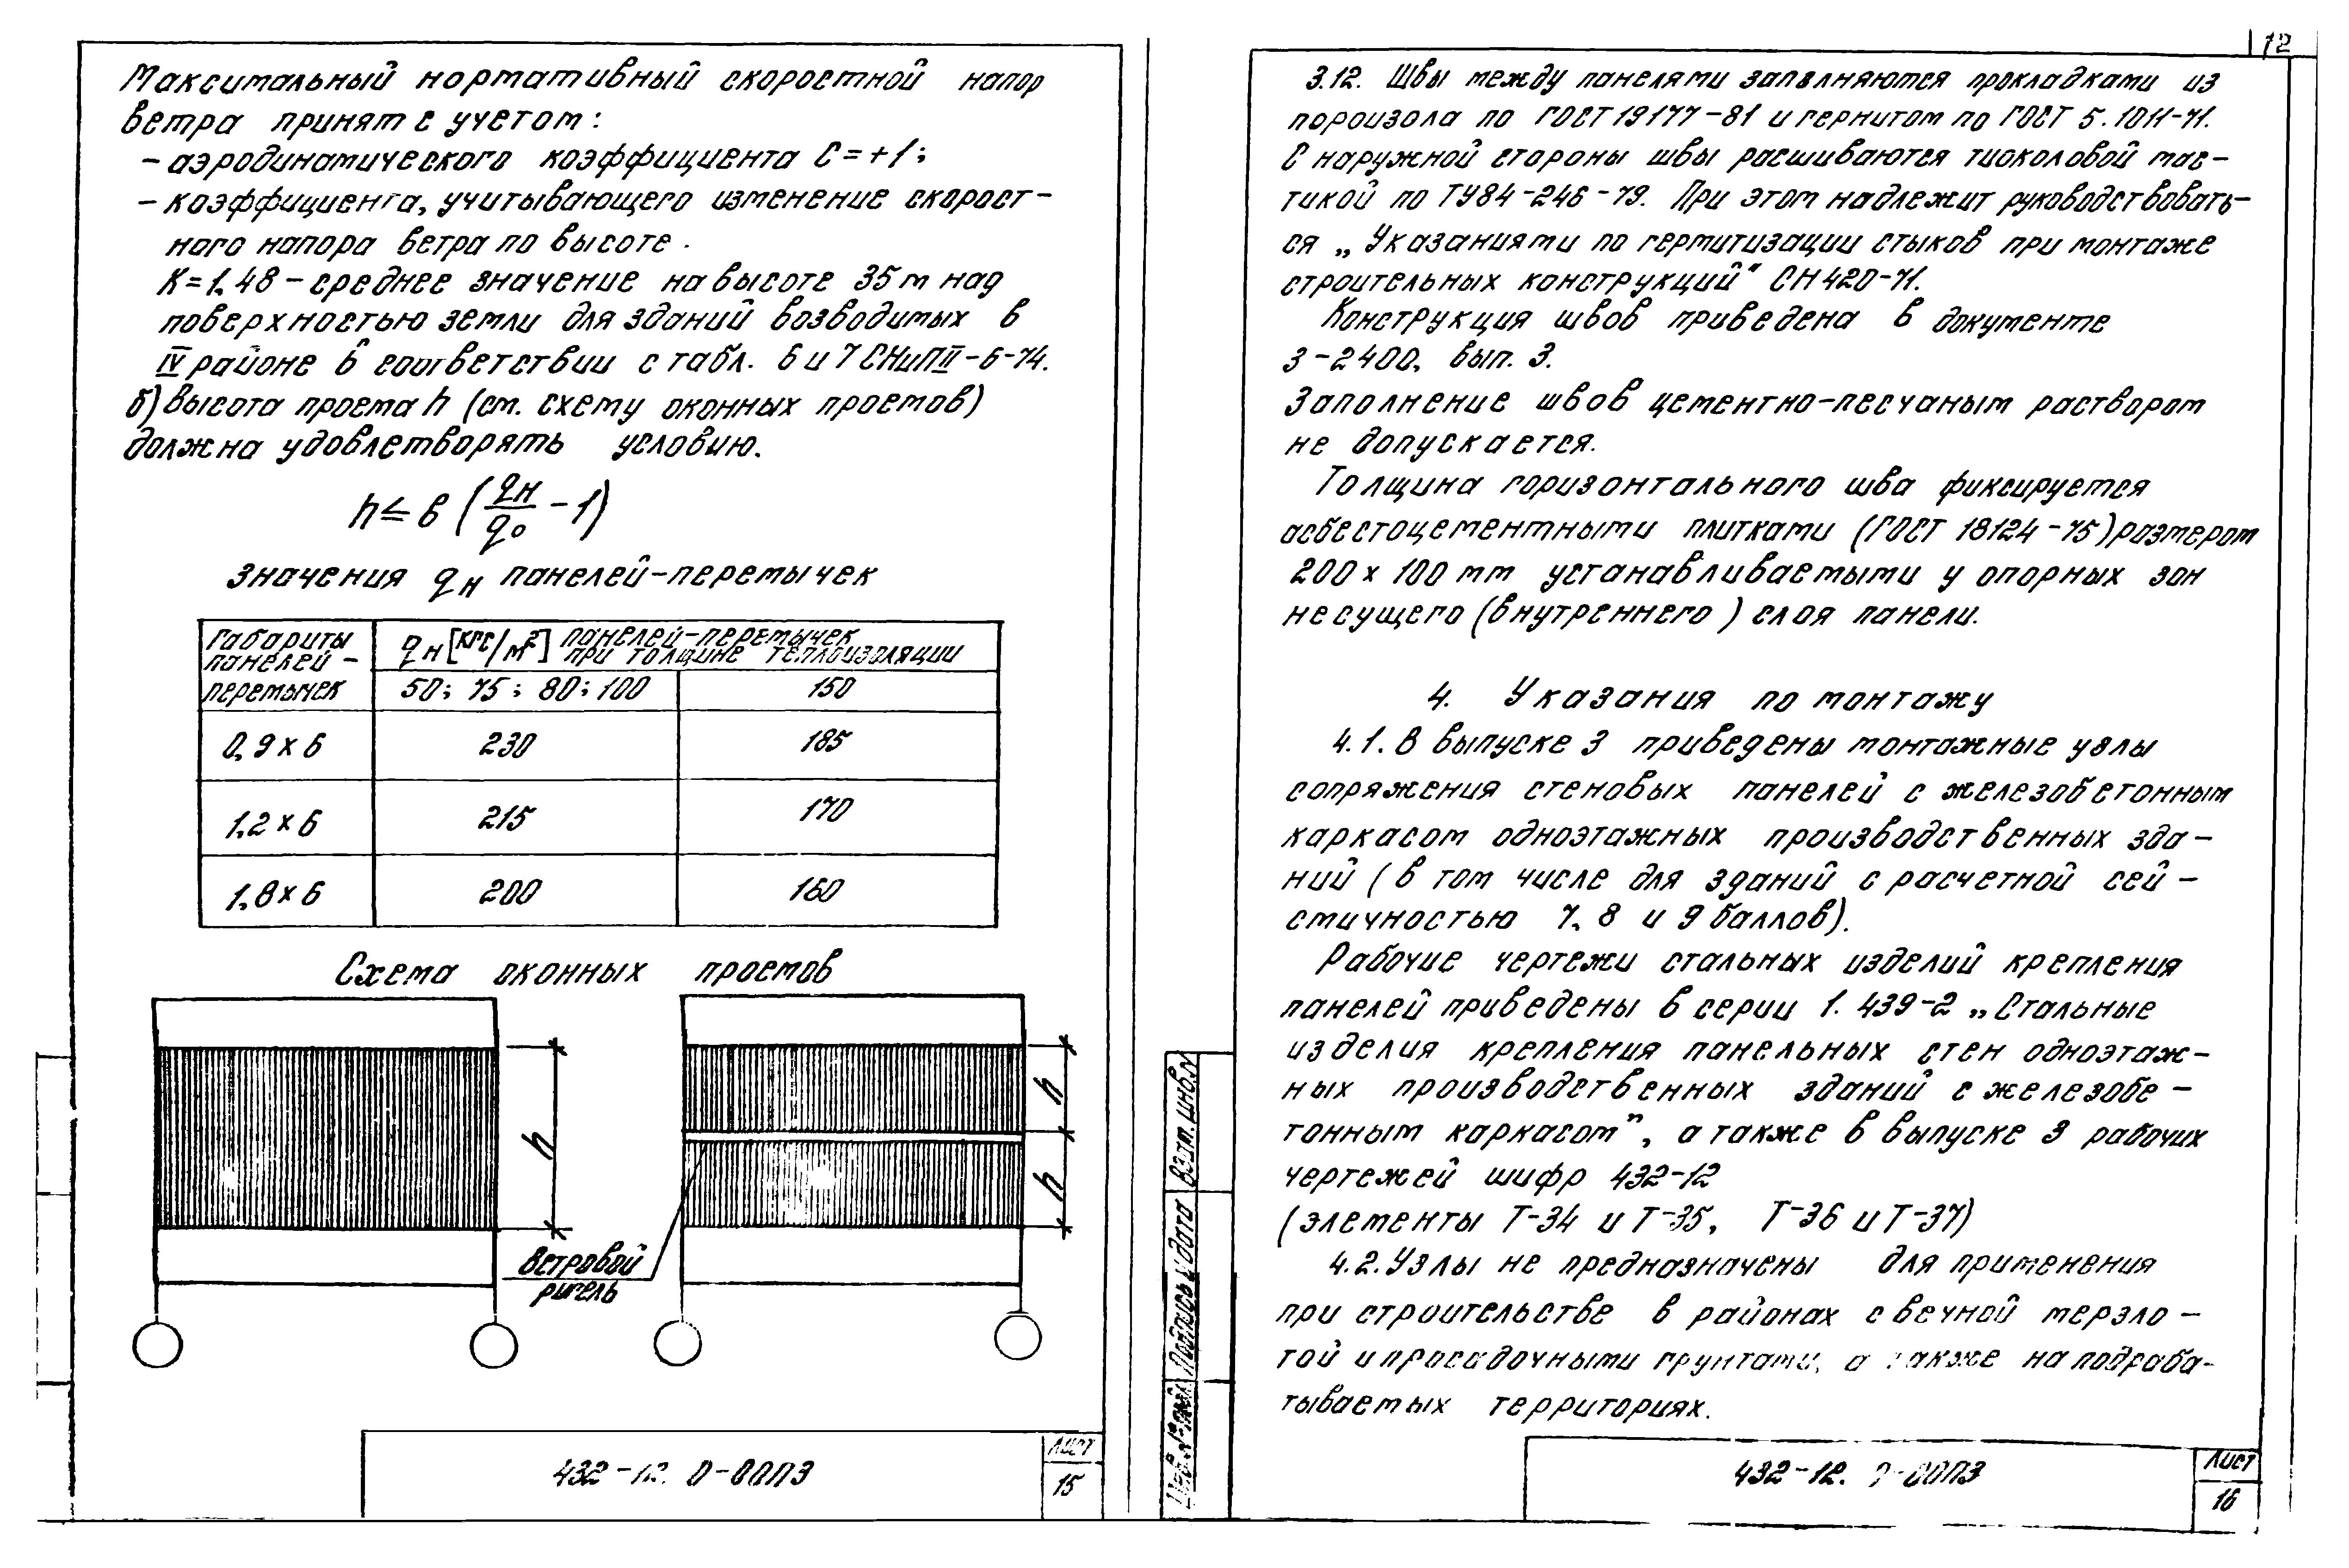 Максимальный нормативный скоростной напор
ветра принят с учетом:
- аэродинамического коэффициента С=+1;
- коэффициента, учитывающего изменение скорост-
ного напора ветра по высоте.
К=1.48 - среднее значение на высоте 35 м над
поверхностью земли для зданий возводимых в
IV районе в соответствии с табл. 6 и 7 СНиП II-6-74.
б) Высота проема h (см. схему оконных проемов)
должна удовлетворять условию.
h ≤ в (qн/q₀ - 1)
Значения qн панелей-перемычек
Габариты панелей-перемычек
qн [кгс/м²] панелей-перемычек при толщине теплоизоляции
50; 75; 80; 100
150
0,9 х 6 230 185
1.2 х 6 215 170
1.8 х 6 200 160
Схема оконных проемов
h
h
h
Ветровой
ригель
432-12. 0-00ПЗ
Лист
15
12
3.12. Швы между панелями заполняются прокладками из
пороизола по ГОСТ 19177-81 и гернитом по ГОСТ 5.1011-71.
С наружной стороны швы расшиваются тиоколовой мас-
тикой по ТУ84-246-79. При этом надлежит руководствовать-
ся „Указаниями по гермитизации стыков при монтаже
строительных конструкций" СН 420-71.
Конструкция швов приведена в документе
3-2400, вып. 3.
Заполнение швов цементно-песчаным раствором
не допускается.
Толщина горизонтального шва фиксируется
асбестоцементными плитками (ГОСТ 18124-75) размером
200 х 100 мм устанавливаемыми у опорных зон
несущего (внутреннего) слоя панели.
4. Указания по монтажу
4.1. В выпуске 3 приведены монтажные узлы
сопряжения стеновых панелей с железобетонным
каркасом одноэтажных производственных зда-
ний (в том числе для зданий с расчетной сей-
смичностью 7, 8 и 9 баллов).
Рабочие чертежи стальных изделий крепления
панелей приведены в серии 1.439-2 „Стальные
изделия крепления панельных стен одноэтаж-
ных производственных зданий с железобе-
тонным каркасом", а также в выпуске 3 рабочих
чертежей шифр 432-12
(элементы Т-34 и Т-35, Т-36 и Т-37)
4.2. Узлы не предназначены для применения
при строительстве в районах с вечной мерзло-
той и просадочными грунтами, а также на подраба-
тываемых территориях.
Взам. инв. №
Подпись и дата
Инв. № подл.
432-12. 0-00ПЗ
Лист
16